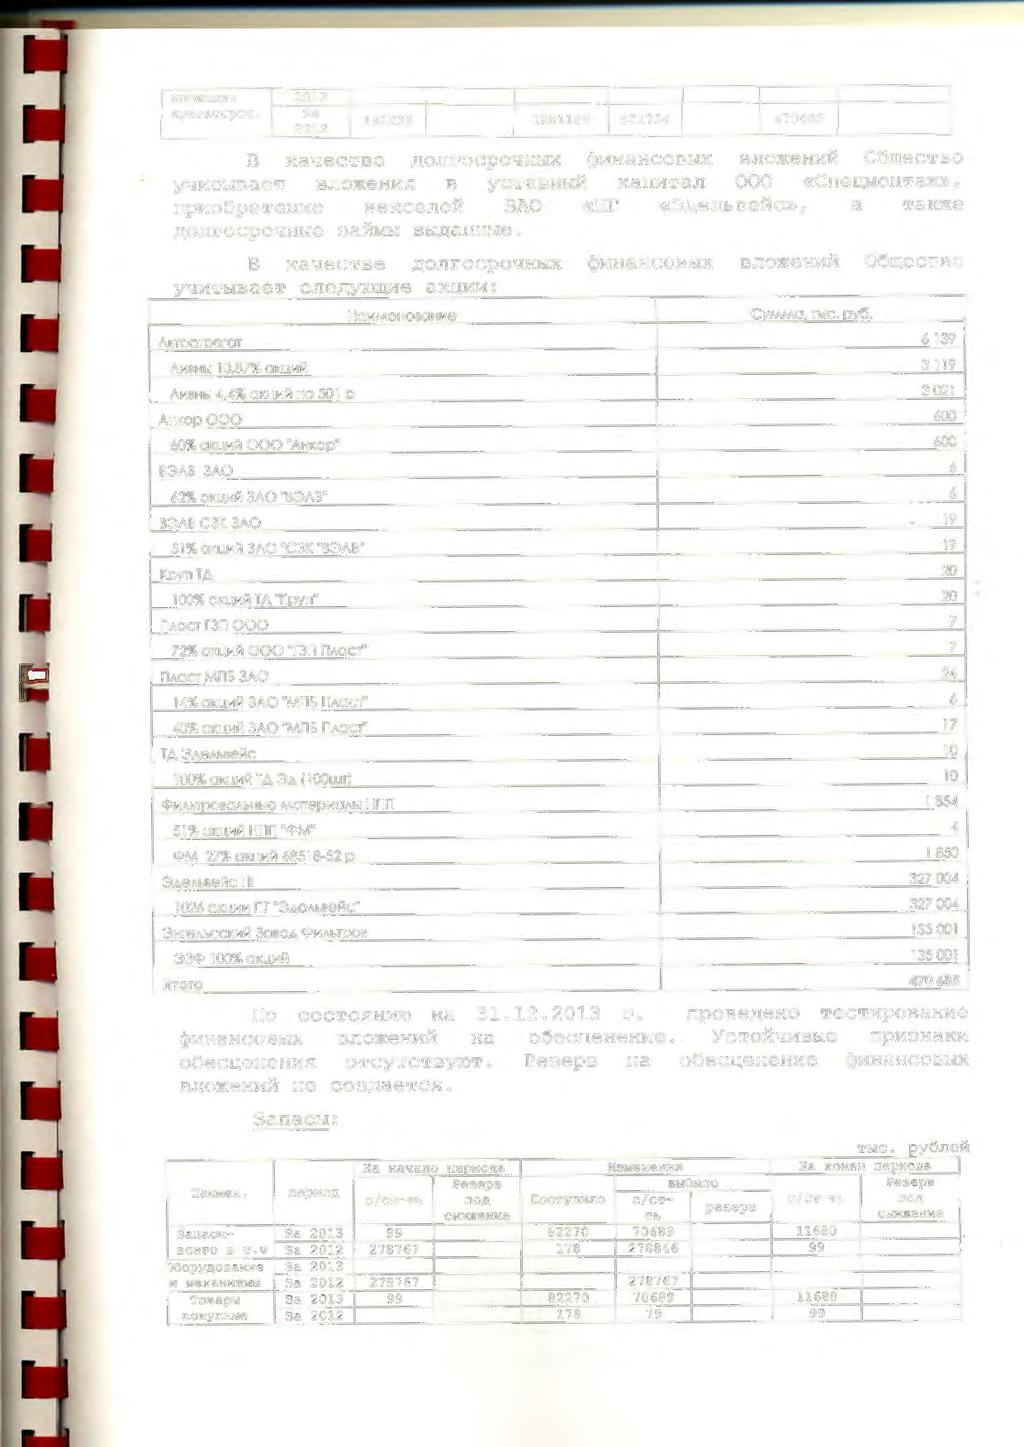 За
В качестве долгосрочных финансовых вложений Общество
учитывает вложения в уставный капитал ООО «Спецмонтаж»,
приобретение векселей ЗАО «ПГ «Эдельвейс», а также
долгосрочные займы выданные.
В качестве долгосрочных финансовых вложений Общество
учитывает следующие акции:
Наименование Сумма, тыс. руб.
Автоагрегат 6 139
Ливны 10,87% акций 3 119
Ливны 4,4% акций по 501 р 3 021
Анкор ООО 600
60% акций ООО "Анкор" 600
ВЭЛВ ЗАО 6
62% акций ЗАО "ВЭЛВ" 6
ВЭЛВ СЗК ЗАО 19
51% акций ЗАО "СЗК "ВЭЛВ" 19
Круп ТД 20
100% акций ТД "Круп" 20
Пласт ГЗП ООО 7
72% акций ООО "ГЗП Пласт" 7
Пласт МПБ ЗАО 24
14% акций ЗАО "МПБ Пласт" 6
40% акций ЗАО "МПБ Пласт" 17
ТД Эдельвейс 10
100% акций ТД Эд (100шт) 10
Фильтровальные материалы НПП 1 854
51% акций НПП "ФМ" 4
ФМ 27% акций 68518-52 р 1 850
Эдельвейс ПГ 327 004
1026 акции ПГ "Эдельвейс" 327 004
Энгельсский Завод Фильтров 135 001
ЭЗФ 100% акций 135 001
Итого 470 685
По состоянию на 31.12.2013 г. проведено тестирование
финансовых вложений на обесценение. Устойчивые признаки
обесценения отсутствуют. Резерв на обесценение финансовых
вложений не создается.
Запасы:
тыс. рублей
На начало периода Изменения На конец периода
Наимен. период с/ст-ть Резерв под снижение Поступило выбыло с/ст-ть резерв Резерв под снижение
Запасы- За 2013 99 82270 70689 11680
всего в т.ч За 2012 278767 178 278846 99
Оборудование За 2013
и механизмы За 2012 278767 278767
Товары За 2013 99 82270 70689 11680
покупные За 2012 178 79 99